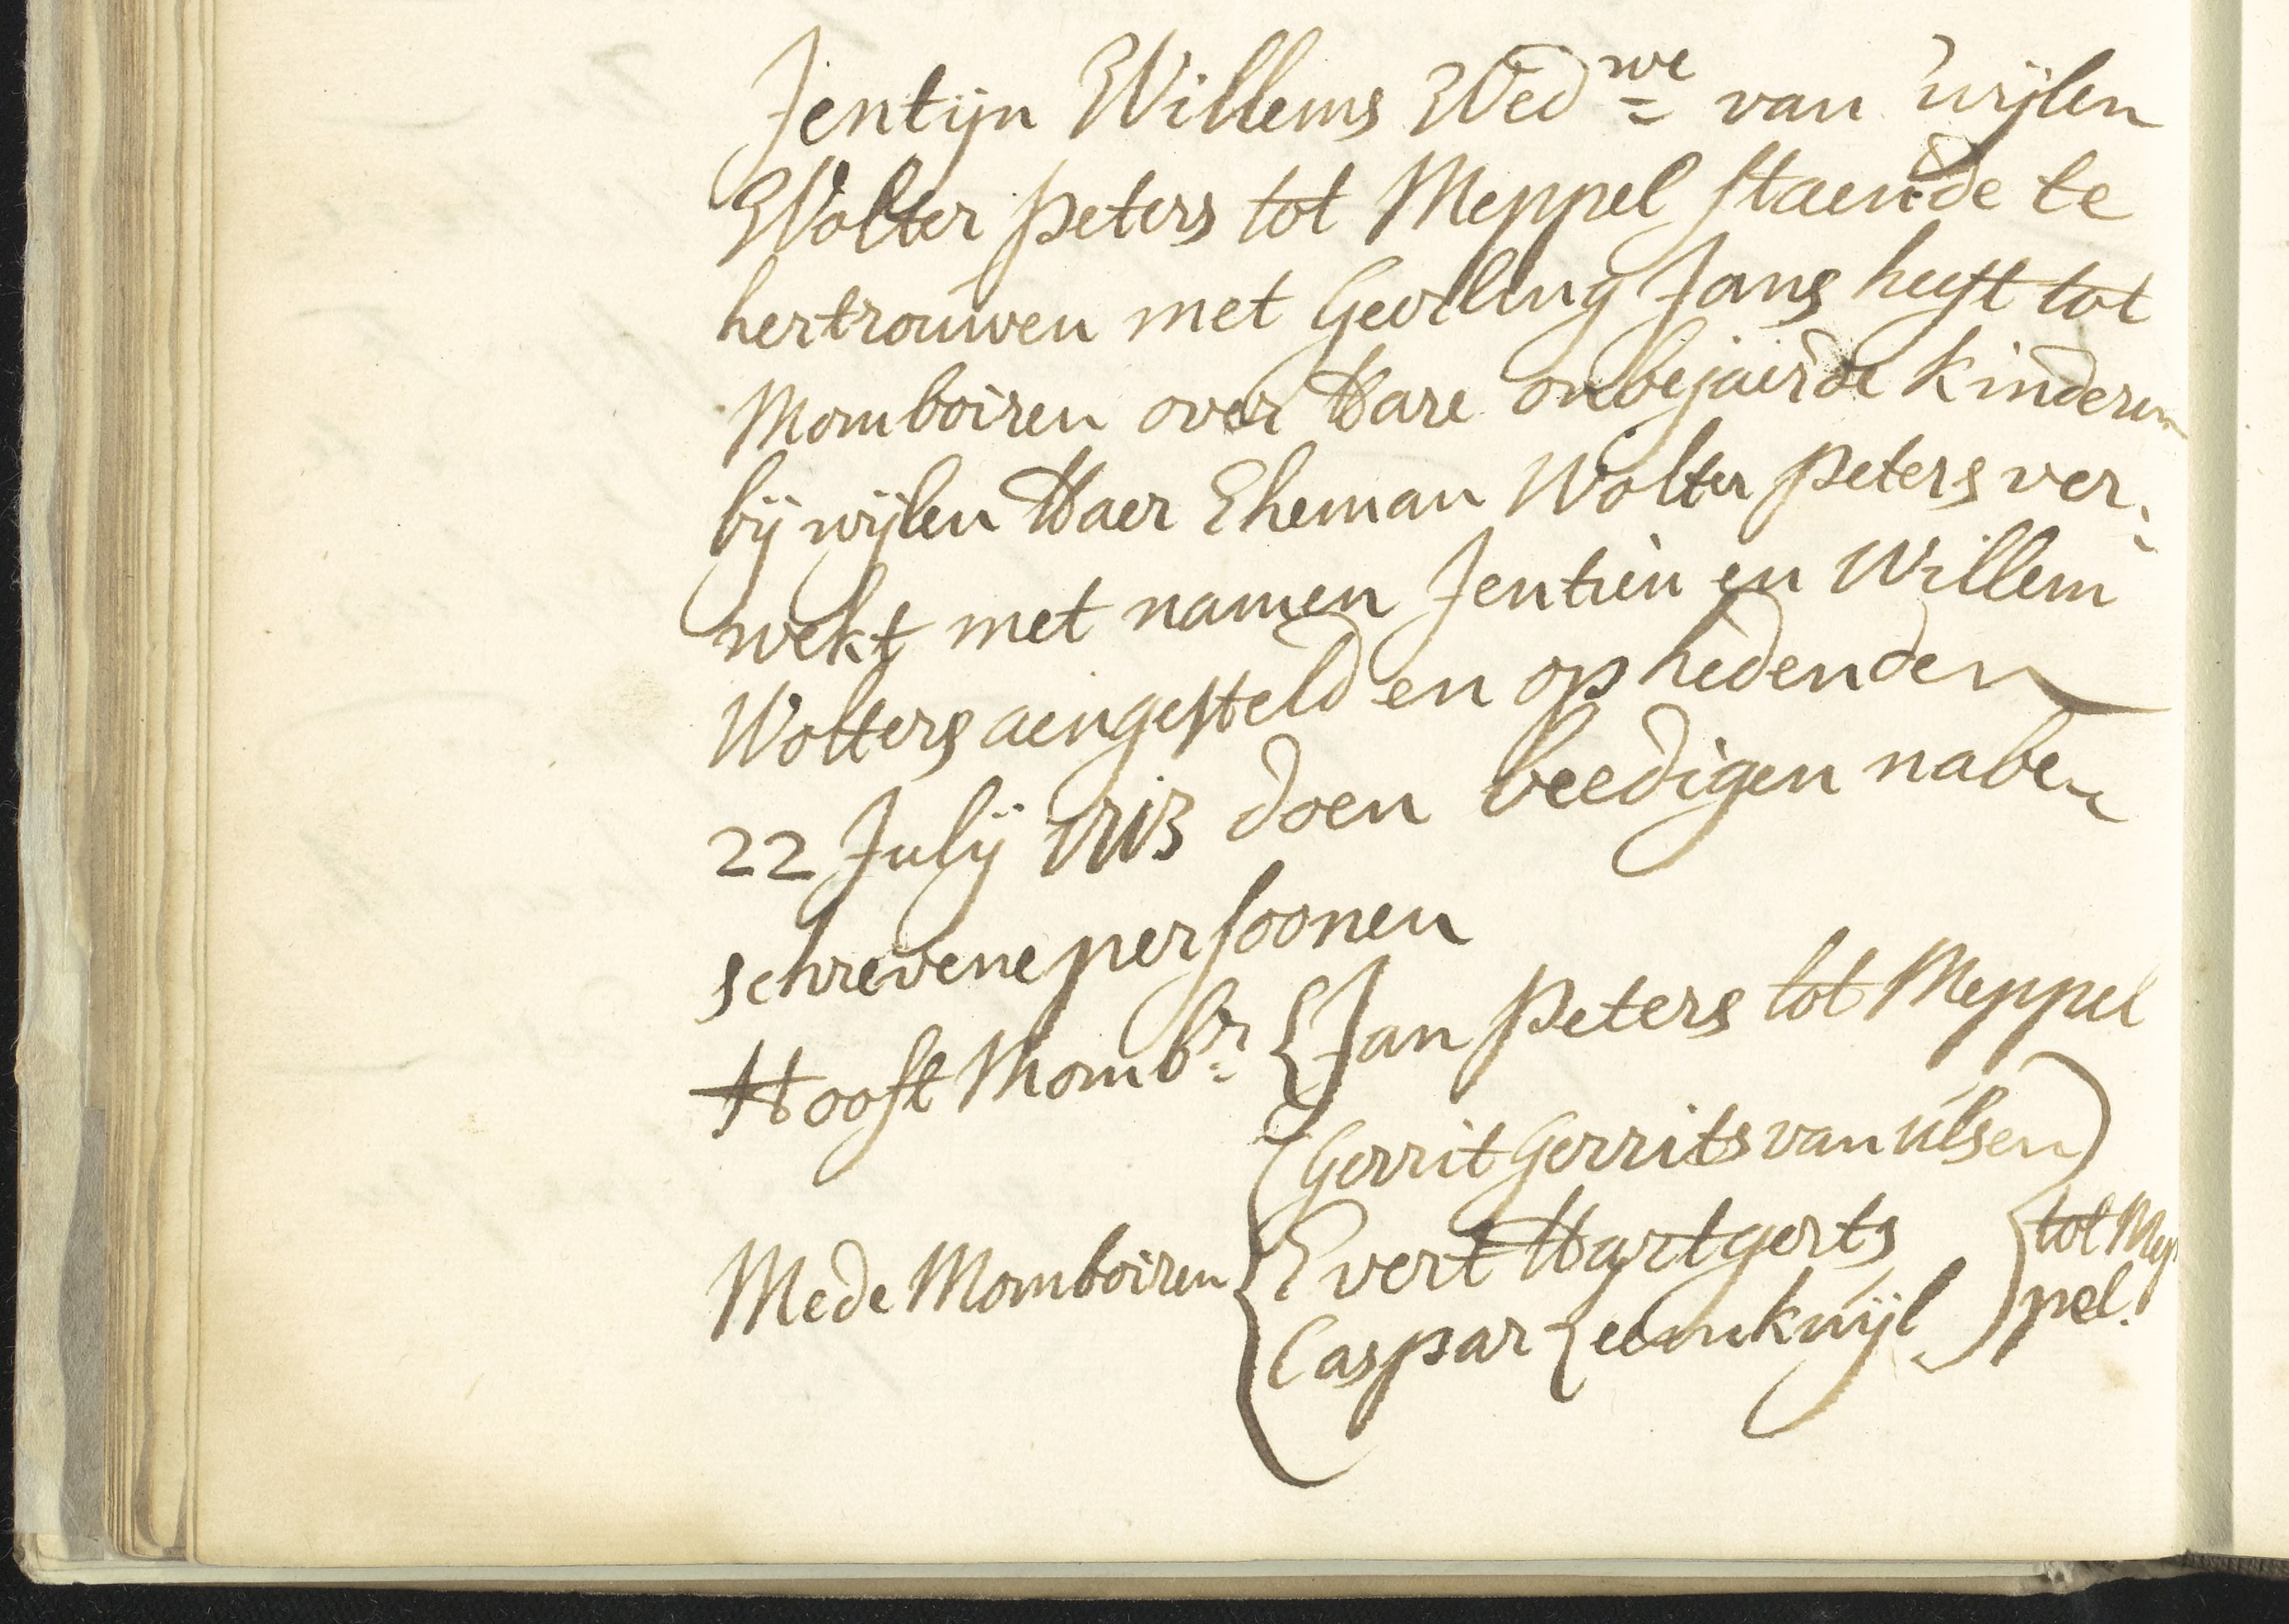 Jentijn Willems Wed we van wijlen
Wolter peters tot Meppel staende te
hertrouwen met Geerling Jans heeft tot
Momboiren over Hare onbejaerde kinderen
bij wijlen Haer Eheman Wolter peters ver
wekt met namen Jentien en Willem
Wolters aengesteld en op heden den
22 Julij 1713 doen beedigen nabe
schrevene persoonen
Hooft Momb.r {Jan peters tot Meppel
Gerrit Gerrits van ulsen
Mede Momboiren Evert Hartgerts tot Mep
Caspar pel.